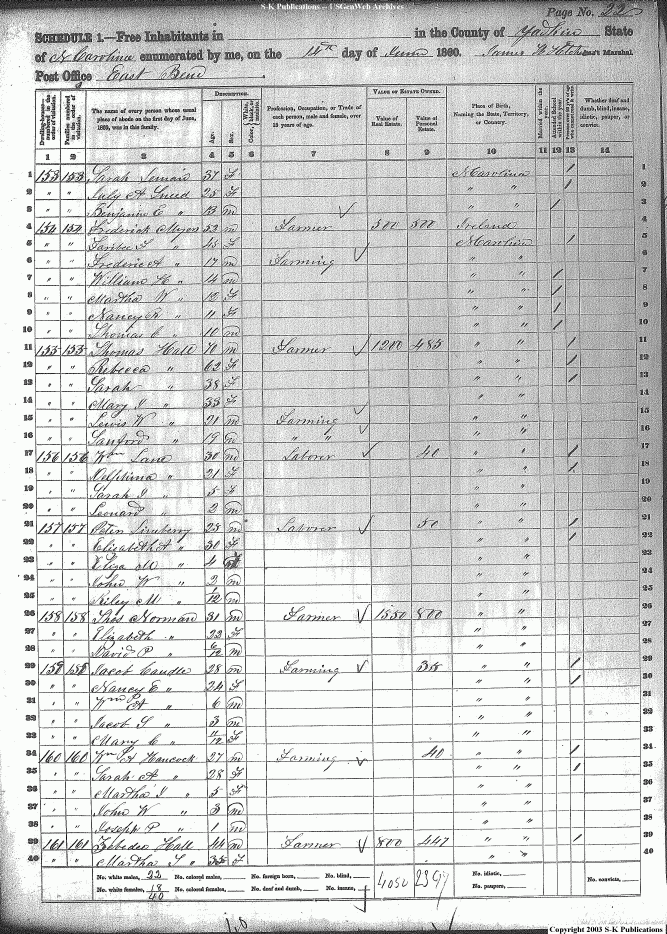 S-K Publications -- USGenWeb Archives
Page No. 22
SCHEDULE 1.—Free Inhabitants in in the County of Yadkin State
of N Carolina enumerated by me, on the 14th day of June 1860. Ass't Marshal
Post Office East Bend
Dwelling-houses numbered in the order of visitation.
Families numbered in the order of visitation.
The name of every person whose usual place of abode on the first day of June, 1860, was in this family.
DESCRIPTION.
Age.
Sex.
Profession, Occupation, or Trade of each person, male and female, over 15 years of age.
VALUE OF ESTATE OWNED.
Value of Real Estate.
Value of Personal Estate.
Place of Birth, Naming the State, Territory, or Country.
Married within the year.
Attended School within the year.
Whether deaf and dumb, blind, insane, idiotic, pauper, or convict.
1 2 3 4 5 6 7 8 9 10 11 12 13 14
1 153 153 Sarah 37 F N Carolina / 1
2 " " July A 25 F " " / 2
3 " " Benjamin C " 13 m " " / 3
4 154 154 Frederick Myers 53 m Farmer 500 500 Ireland 4
5 " " T " 45 F N Carolina / 5
6 " " Frederic A " 17 m Farming " " 6
7 " " William H " 14 m " " / 7
8 " " Martha W " 12 F " " / 8
9 " " Nancy R " 11 F " " / 9
10 " " Thomas C " 10 m " " / 10
11 155 155 Thomas Hall 70 m Farmer 1200 485 " " / 11
12 " " Rebecca " 62 F " " / 12
13 " " Sarah " 38 F " " / 13
14 " " Mary J " 33 F " " 14
15 " " Lewis W " 21 m Farming " " 15
16 " " Sanford " 19 m " " " " 16
17 156 156 Wm Lane 30 m Laborer 40 " " / 17
18 " " Delphina " 21 F " " / 18
19 " " Sarah J " 5 F " " 19
20 " " Leonard " 2 m " " 20
21 157 157 Peter 25 m Laborer 50 " " / 21
22 " " Elizabeth A " 30 F " " / 22
23 " " Eliza M " 4 " " 23
24 " " John W " 2 m " " 24
25 " " Riley M " /12 m " " 25
26 158 158 Thos Norman 31 m Farmer 1550 800 " " 26
27 " " Elizabeth " 22 F " " 27
28 " " David P " m " " 28
29 159 159 Jacob Caudle 28 m Farming 35 " " / 29
30 " " Nancy E " 24 F " " / 30
31 " " Wm A " 6 m " " 31
32 " " Jacob S " 3 m " " 32
33 " " Mary C " 11/12 F " " 33
34 160 160 Wm A Hancock 27 m Farming 40 " " / 34
35 " " Sarah A " 28 F " " / 35
36 " " Martha J " 5 F " " 36
37 " " John W " 3 m " " 37
38 " " Joseph P " 1 m " " 38
39 161 161 Zebedee Hall 44 m Farmer 800 447 " " / 39
40 " " Martha S " 35 F " " 40
No. white males, 22 No. colored males, No. foreign born, No. blind, 4050 2397 No. idiotic, No. convicts,
No. white females, 18 No. colored females, No. deaf and dumb, No. insane, No. paupers,
40
Copyright 2003 S-K Publications